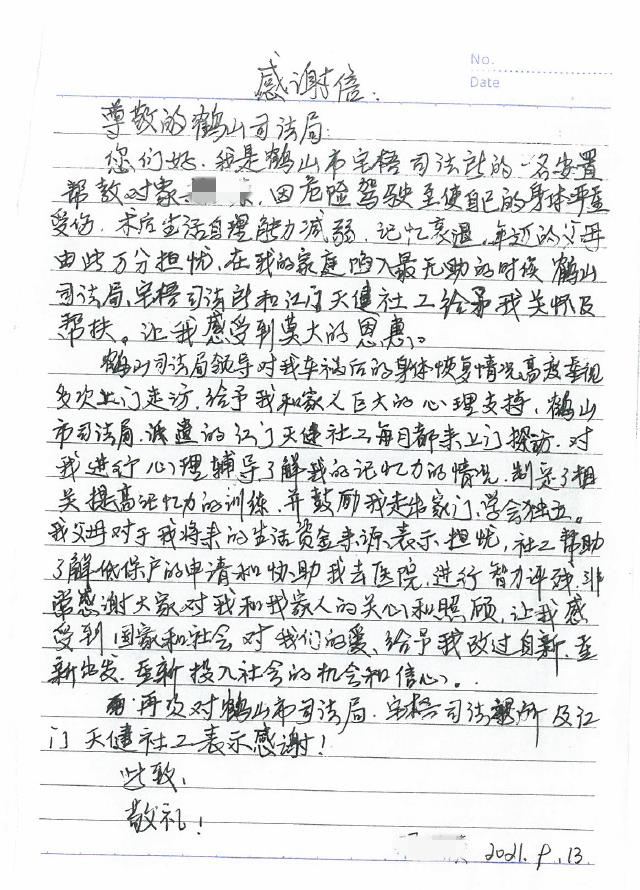 No.
Date
感谢信:
尊敬的鹤山司法局:
您们好.我是鹤山市宅梧司法所的一名安置
帮教对象 .因危险驾驶至使自己的身体严重
受伤.术后生活自理能力减弱.记忆衰退.年迈的父母
由此万分担忧.在我的家庭陷入最无助的时候鹤山
司法局、宅梧司法所和江门天健社工给予我关怀及
帮扶。让我感受到莫大的恩惠。
鹤山司法局领导对我车祸后的身体恢复情况高度重视
多次上门走访.给予我和家人巨大的心理支持、鹤山
市司法局.派遣的江门天健社工每月都来上门探访.对
我进行心理辅导.了解我的记忆力的情况.制定了相
关提高记忆力的训练.并鼓励我走出家门.学会独立。
我父母对于我将来的生活资金来源.表示.担忧,社工帮助
了解低保户的申请和协助我去医院.进行智力评残.非
常感谢大家对我和我家人的关心和照顾.让我感
受到国家和社会对我们的爱、给予我改过自新.重
新出发.重新投入社会的机会和信心。
再次对鹤山市司法局.宅梧司法所及江
门天健社工表示感谢!
此致,
敬礼!
2021.9.13